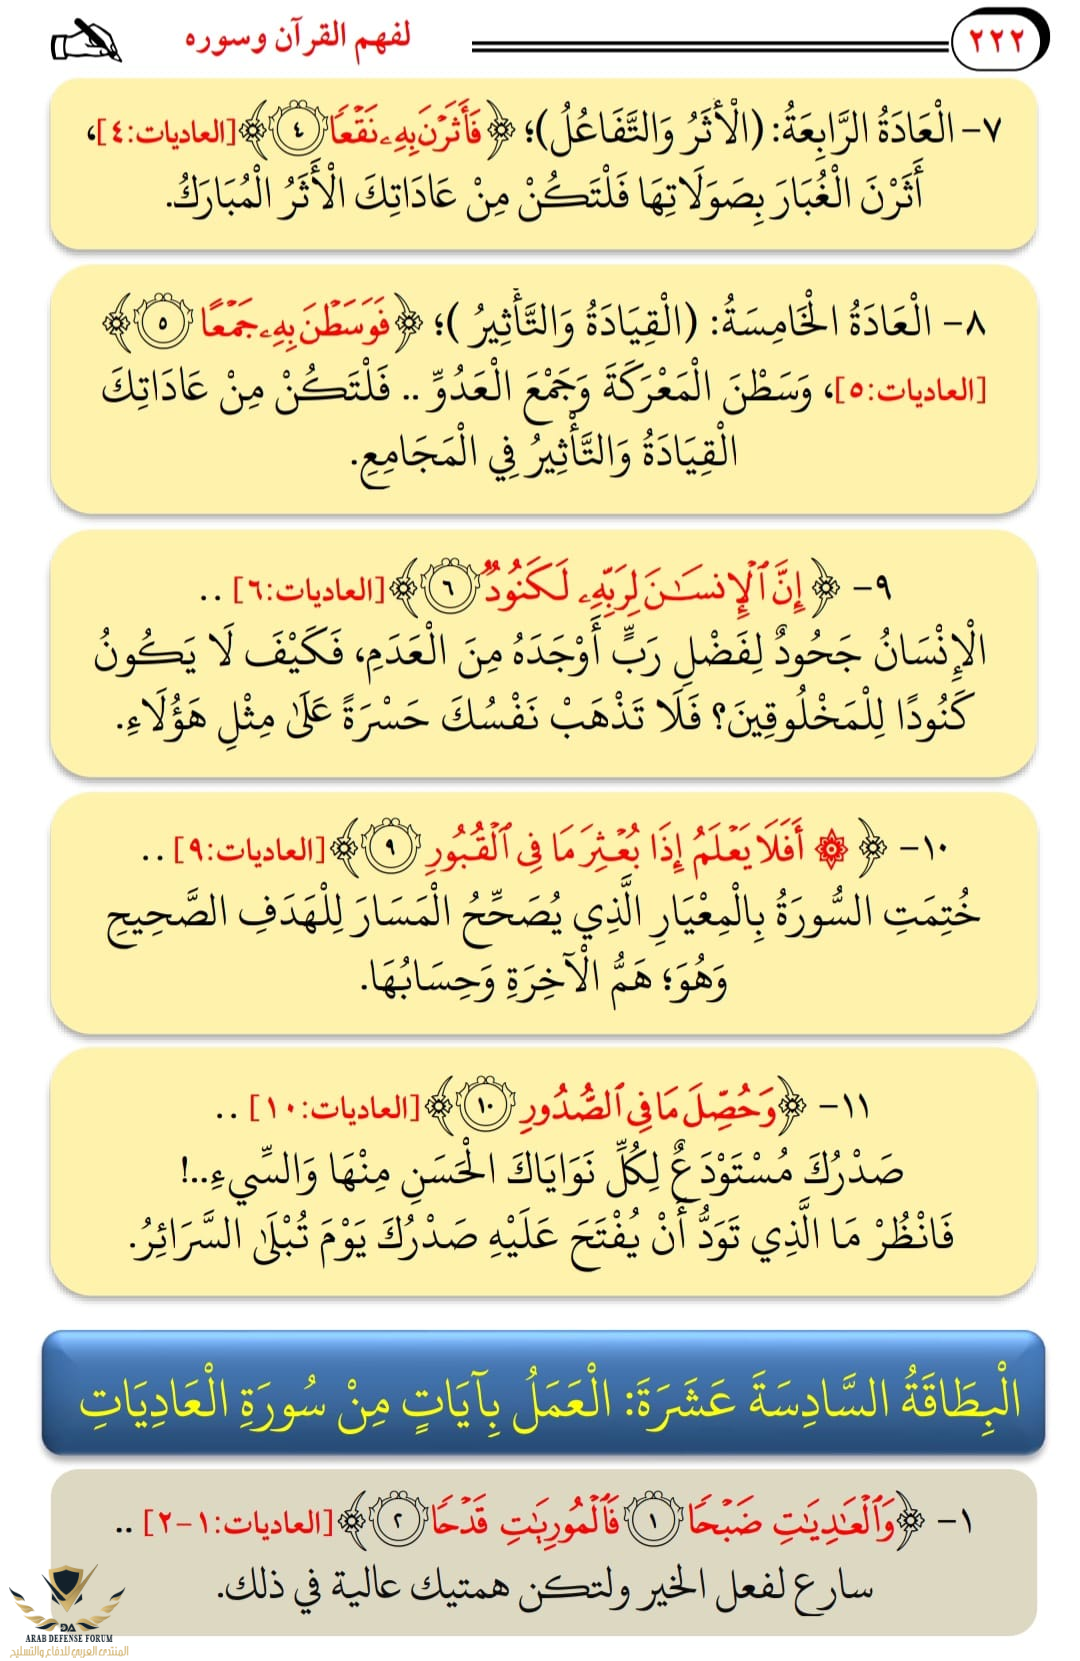 ٢٢٢
لفهم القرآن وسوره
٧- الْعَادَةُ الرَّابِعَةُ: (الْأَثَرُ وَالتَّفَاعُلُ)؛ ﴿فَأَثَرْنَ بِهِۦ نَقْعًا ٤﴾ [العاديات:٤]،
أَثَرْنَ الْغُبَارَ بِصَوَلَاتِهَا فَلْتَكُنْ مِنْ عَادَاتِكَ الْأَثَرُ الْمُبَارَكُ.
٨- الْعَادَةُ الْخَامِسَةُ: (الْقِيَادَةُ وَالتَّأْثِيرُ )؛ ﴿فَوَسَطْنَ بِهِۦ جَمْعًا ٥﴾
[العاديات:٥]، وَسَطْنَ الْمَعْرَكَةَ وَجَمْعَ الْعَدُوِّ .. فَلْتَكُنْ مِنْ عَادَاتِكَ
الْقِيَادَةُ وَالتَّأْثِيرُ فِي الْمَجَامِعِ.
٩- ﴿إِنَّ ٱلْإِنسَٰنَ لِرَبِّهِۦ لَكَنُودٌ ٦﴾ [العاديات:٦] ..
الْإِنْسَانُ جَحُودٌ لِفَضْلِ رَبٍّ أَوْجَدَهُ مِنَ الْعَدَمِ، فَكَيْفَ لَا يَكُونُ
كَنُودًا لِلْمَخْلُوقِينَ؟ فَلَا تَذْهَبْ نَفْسُكَ حَسْرَةً عَلَىٰ مِثْلِ هَؤُلَاءِ.
١٠- ﴿۞ أَفَلَا يَعْلَمُ إِذَا بُعْثِرَ مَا فِى ٱلْقُبُورِ ٩﴾ [العاديات:٩] ..
خُتِمَتِ السُّورَةُ بِالْمِعْيَارِ الَّذِي يُصَحِّحُ الْمَسَارَ لِلْهَدَفِ الصَّحِيحِ
وَهُوَ؛ هَمُّ الْآخِرَةِ وَحِسَابُهَا.
١١- ﴿وَحُصِّلَ مَا فِى ٱلصُّدُورِ ١٠﴾ [العاديات:١٠] ..
صَدْرُكَ مُسْتَوْدَعٌ لِكُلِّ نَوَايَاكَ الْحَسَنِ مِنْهَا وَالسِّيءِ..!
فَانْظُرْ مَا الَّذِي تَوَدُّ أَنْ يُفْتَحَ عَلَيْهِ صَدْرُكَ يَوْمَ تُبْلَىٰ السَّرَائِرُ.
الْبِطَاقَةُ السَّادِسَةَ عَشَرَةَ: الْعَمَلُ بِآيَاتٍ مِنْ سُورَةِ الْعَادِيَاتِ
١- ﴿وَٱلْعَٰدِيَٰتِ ضَبْحًا ١ فَٱلْمُورِيَٰتِ قَدْحًا ٢﴾ [العاديات:١-٢] ..
سارع لفعل الخير ولتكن همتيك عالية في ذلك.
DA
ARAB DEFENSE FORUM
المنتدى العربي للدفاع والتسليح